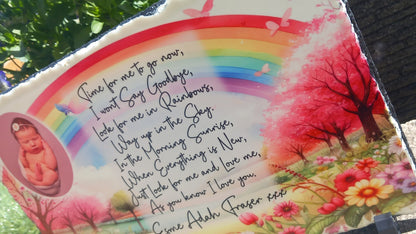 Time for me to go now,
I won't Say Goodbye,
Look for me in Rainbows,
Way up in the Sky.
In the Morning Sunrise,
When Everything is New,
Just Look for me and Love me,
As you know I love you.
Esme Adah Fraser xxx